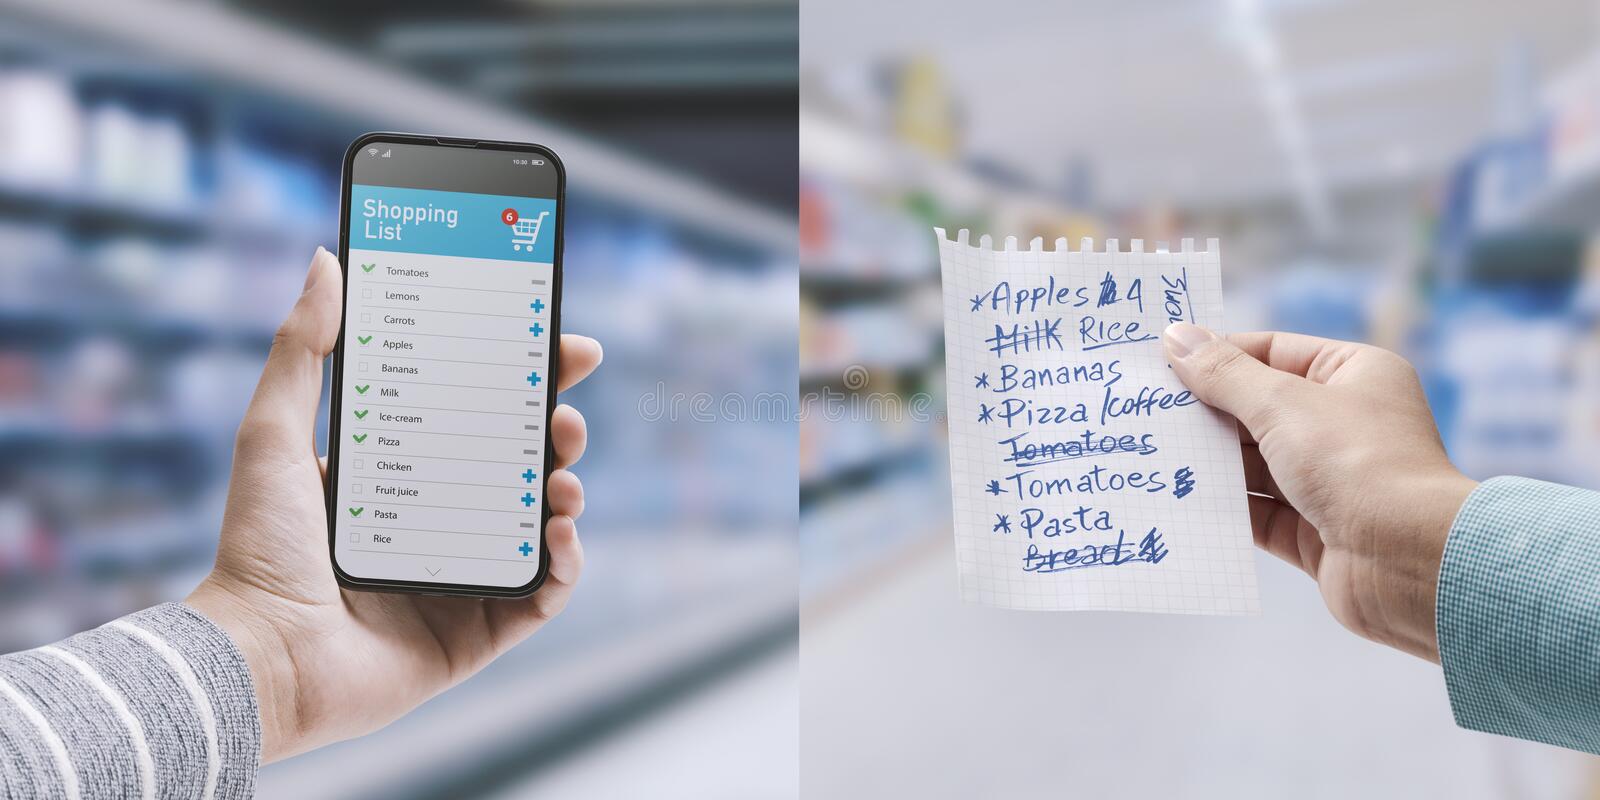 10:30
Shopping
List
6
Tomatoes
Lemons
Carrots
Apples
Bananas
Milk
Ice-cream
Pizza
Chicken
Fruit juice
Pasta
Rice
*Apples 4
Milk Rice
*Bananas
*Pizza/coffee
Tomatoes
*Tomatoes
*Pasta
Bread
dreamstime.com